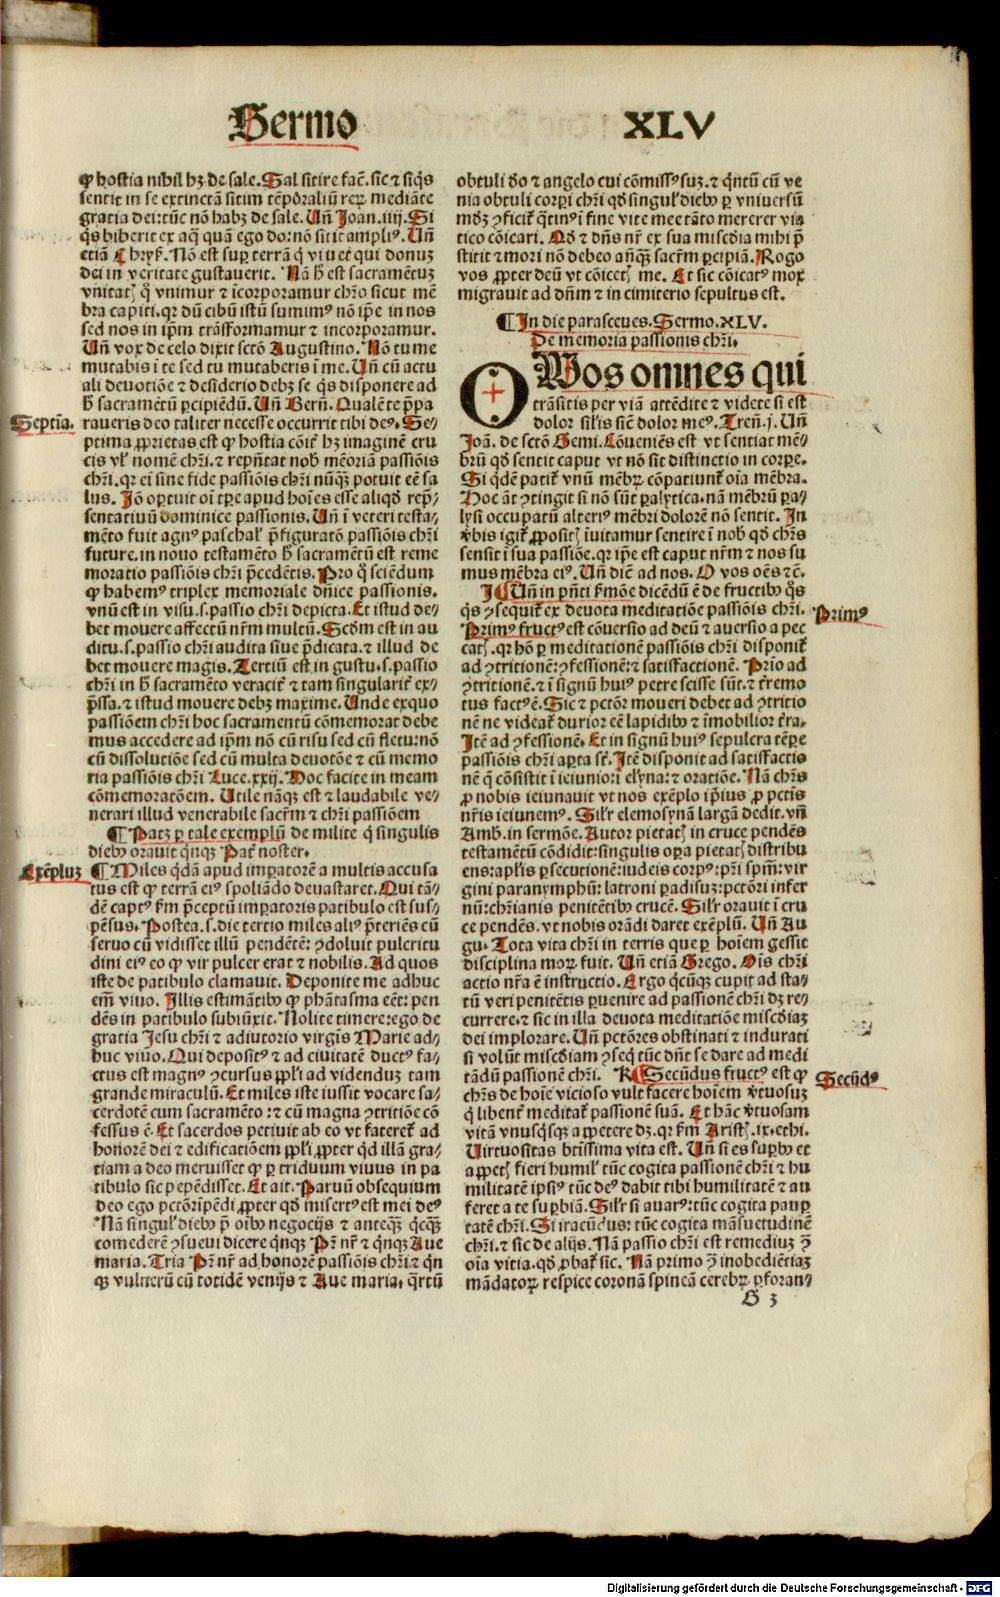 Sermo XLV
ꝙ hostia nihil hꝫ de sale. Sal sitire facͥt. sic ⁊ siq̄s
sentit in se extinctā sitim tēpōraliū reꝝ mediāte
gratia dei: tūc nō habꝫ de sale. Uñ Joan. iiij. Si
q̄s biberit ex aq̄ quā ego do: nō sitit ampliꝰ. Uñ
etiā Chryſ. Nō est suꝑ terrā q̄ viuet qui donuꝫ
dei in veritate gustauerit. Nā h̄ est sacramētuꝫ
vnitatꝭ q̊ vnimur ⁊ īcorporamur chr̄o sicut mē
bra capiti. qꝛ dū cibū istū sumimꝰ nō ip̄e in nos
sed nos in ip̄m trāsformamur ⁊ incorporamur.
Uñ vox de celo dixit sctō Augustino. Nō tu me
mutabis ī te sed tu mutaberis ī me. Uñ cū actu
ali deuotiōe ⁊ desiderio debꝫ se q̄s disponere ad
h̄ sacramētū ꝑcipiēdū. Uñ Berñ. Qualēte p̄pa
Septīa. raueris deo taliter necesse occurrit tibi deꝰ. Se⸗
ptima ꝓprietas est ꝙ hostia cōit̄ hꝫ imaginē cru
cis vl̓ nomē chr̄i. ⁊ rep̄ñtat nob̄ mēoriā passiōis
chr̄i. qꝛ ei sine fide passiōis chr̄i nūq̄ꝫ potuit eē sa
lus. Jō oꝑtuit oī tꝑe apud hoīes esse aliqd̄ rep̄⸗
sentatiuū dominice passionis. Uñ ī veteri testa⸗
mēto fuit agnꝰ paschal̓ p̄figuratō passiōis chr̄i
future. in nouo testamēto h̄ sacramētū est reme
moratio passiōis chr̄i p̄cedētis. Pro q̊ sciēdum
ꝙ habemꝰ triplex memoriale dn̄ice passionis.
vnū est in visu. s. passio chr̄i depicta. Et istud de⸗
bet mouere affectū nr̄m multū. Scdm̄ est in au
ditu. s. passio chr̄i audita siue p̄dicata. ⁊ illud de
bet mouere magis. Tertiū est in gustu. s. passio
chr̄i in h̄ sacramēto veracit̄ ⁊ tam singularit̄ ex⸗
p̄ssa. ⁊ istud mouere debꝫ maxime. Unde exquo
passiōem chr̄i hoc sacramentū cōmemorat debe
mus accedere ad ip̄m nō cū risu sed cū fletu: nō
cū dissolutiōe sed cū multa deuotōe ⁊ cū memo
ria passiōis chr̄i Luce. xxij. Hoc facite in meam
cōmemoratōem. Utile nāqꝫ est ⁊ laudabile ve⸗
nerari illud venerabile sacr̄m ⁊ chr̄i passiōem
¶ Patꝫ ꝑ tale exemplū de milite q̄ singulis
diebꝰ orauit qn̄qꝫ Pat̄ noster.
Exēpluꝫ ¶ Miles qdā apud imꝑatorē a multis accusa
tus est ꝙ terrā eiꝰ spoliādo deuastaret. Qui tā⸗
dē captꝰ ẜm p̄ceptū imꝑatoris patibulo est sus⸗
pēsus. Postea. s. die tertio miles aliꝰ p̄teriēs cū
seruo cū vidisset illū pendētē: ꝯdoluit pulcritu
dini eiꝰ eo ꝙ vir pulcer erat ⁊ nobilis. Ad quos
iste de patibulo clamauit. Deponite me adhuc
em̄ viuo. Illis estimātibꝰ ꝙ phātasma eēt: pen
dēs in patibulo subiūxit. Nolite timere: ego de
gratia Jesu chr̄i ⁊ adiutorio virgīs Marie ad⸗
huc viuo. Qui depositꝰ ⁊ ad ciuitatē ductꝰ fa⸗
ctus est magnꝰ ꝯcursus ppl̓i ad videnduꝫ tam
grande miraculū. Et miles iste iussit vocare sa⸗
cerdotē cum sacramēto: ⁊ cū magna ꝯtritiōe cō
fessus ē. Et sacerdos petiuit ab eo vt fateret̄ ad
honorē dei ⁊ edificatiōem ppl̓i ꝓpter qd̄ illā gra⸗
tiam a deo meruisset ꝙ ꝑ triduum viuus in pa
tibulo sic pepēdisset. Et ait. Paruū obsequium
deo ego pctōr īpēdi ꝓpter qd̄ misertꝰ est mei deꝰ
Nā singul̓ diebꝰ p̄ oībꝰ negocijs ⁊ anteq̄ꝫ q̄cq̄ꝫ
comederē ꝯsueui dicere qn̄qꝫ Pr̄ nr̄ ⁊ qn̄qꝫ Aue
maria. Tria Pr̄ nr̄ ad honorē passiōis chr̄i: ⁊ qn̄
qꝫ vulnerū cū totidē venijs ⁊ Aue maria. q̄rtū
obtuli dō ⁊ angelo cui cōmissꝰ suꝫ. ⁊ q̄ntū cū ve
nia obtuli corꝑi chr̄i qd̄ singul̓ diebꝰ ꝑ vniuersū
mūdꝫ ꝯficit̄ q̄tinꝰ ī fine vite mee tāto mererer via
tico cōicari. Qd̄ ⁊ dn̄s nr̄ ex sua mīscdia mihi p̄
stitit ⁊ mori nō debeo anq̄ꝫ sacr̄m ꝑcipiā. Rogo
vos ꝓpter deū vt cōicetꝭ me. Et sic cōicatꝰ mox
migrauit ad dn̄m ⁊ in cimiterio sepultus est.
¶ In die parasceues. Sermo. XLV.
De memoria passionis chr̄i.
O Uos omnes qui
trāsitis per viā attēdite ⁊ videte si est
dolor sil̓is sic̄ dolor meꝰ. Treñ. j. Uñ
Joā. de sctō Gemi. Cōueniēs est vt sentiat mē⸗
brū qd̄ sentit caput vt nō sit distinctio in corꝑe.
Si q̄dē patit̄ vnū mēbꝝ cōpatiunt̄ oīa mēbra.
Hoc āt ꝯtingit si nō sūt ꝑalytica. nā mēbrū ꝑa⸗
lysi occupatū alteriꝰ mēbri dolorē nō sentit. In
v̄bis igit̄ ꝓpositꝭ īuitamur sentire ī nob̄ qd̄ chr̄s
sensit ī sua passiōe. qꝛ ip̄e est caput nr̄m ⁊ nos su
mus mēbra eiꝰ. Uñ diē ad nos. O vos oēs ⁊c̄.
I ¶ Uñ in pn̄ti ẜmōe dicēdū ē de fructibꝰ qͦs
Primꝰ q̄s ꝯsequit̄ ex deuota meditatiōe passiōis chr̄i.
Primꝰ fructꝰ est cōuersio ad deū ⁊ auersio a pec
catꝭ. qꝛ hō ꝑ meditationē passiōis chr̄i disponit̄
ad ꝯtritionē: ꝯfessionē: ⁊ satisfactionē. Prīo ad
ꝯtritionē. ⁊ ī signū huiꝰ petre scisse sūt. ⁊ t̄remo
tus factꝰ ē. Sic ⁊ pctōr moueri debet ad ꝯtritio
nē ne videat̄ durior eē lapidibꝰ ⁊ īmobilior t̄ra.
Itē ad ꝯfessionē. Et in signū huiꝰ sepulcra tēꝑe
passiōis chr̄i aꝑta st̄. Itē disponit ad satisfactio
nē q̄ cōsistit ī ieiunio: ī elyna: ⁊ oratiōe. Nā chr̄s
ꝓ nobis ieiunauit vt nos exēplo ip̄ius ꝓ pctīs
nr̄is ieiunemꝰ. Sil̓r elemosynā largā dedit. vñ
Amb. in sermōe. Autor pietatꝭ in cruce pendēs
testamētū cōdidit: singulis oꝑa pietatꝭ distribu
ens: apl̓is ꝑsecutionē: iudeis corpꝰ: pr̄i spm̄: vir
gini paranymphū: latroni ꝑadisuꝫ: pctōri infer
nū: chr̄ianis penitētibꝰ crucē. Sil̓r orauit ī cru
ce pendēs. vt nobis orādi daret exēplū. Uñ Au
gu. Tota vita chr̄i in terris que ꝑ hoīem gessit
disciplina moꝝ fuit. Uñ etiā Grego. Oīs chr̄i
actio nr̄a ē instructio. Ergo qcūqꝫ cupit ad sta⸗
tū veri penitētis ꝑuenire ad passionē chr̄i dꝫ re⸗
currere. ⁊ sic in illa deuota meditatiōe mīscdiaꝫ
dei implorare. Uñ pctōres obstinati ⁊ indurati
si volūt mīscdiam ꝯseq̄ tūc dn̄t se dare ad medi
tādū passionē chr̄i. K ¶ Secūdus fructꝰ est ꝙ
Secūdꝰ chr̄s de hoīe vicioso vult facere hoīem v̄tuosuꝫ
q̄ libent̄ meditat̄ passionē suā. Et hāc v̄tuosam
vitā vnusq̄sqꝫ appetere dꝫ. qꝛ ẜm Aristꝭ. ix. ethi.
Uirtuositas btīssima vita est. Uñ si es suꝑbꝰ et
appetꝭ fieri humil̓ tūc cogita passionē chr̄i ⁊ hu
militatē ipsiꝰ tūc deꝰ dabit tibi humilitatē ⁊ au
feret a te suꝑbiā. Sil̓r si auarꝰ: tūc cogita pauꝑ
tatē chr̄i. Si iracūdus: tūc cogita māsuetudinē
chr̄i. ⁊ sic de alijs. Nā passio chr̄i est remediuꝫ ꝯ̄
oīa vitia. qd̄ ꝓbat̄ sic. Nā primo ꝯ̄ inobediētiaꝫ
mādatoꝝ respice coronā spineā cerebꝝ ꝑforan⸗
G 3
Digitalisierung gefördert durch die Deutsche Forschungsgemeinschaft - DFG